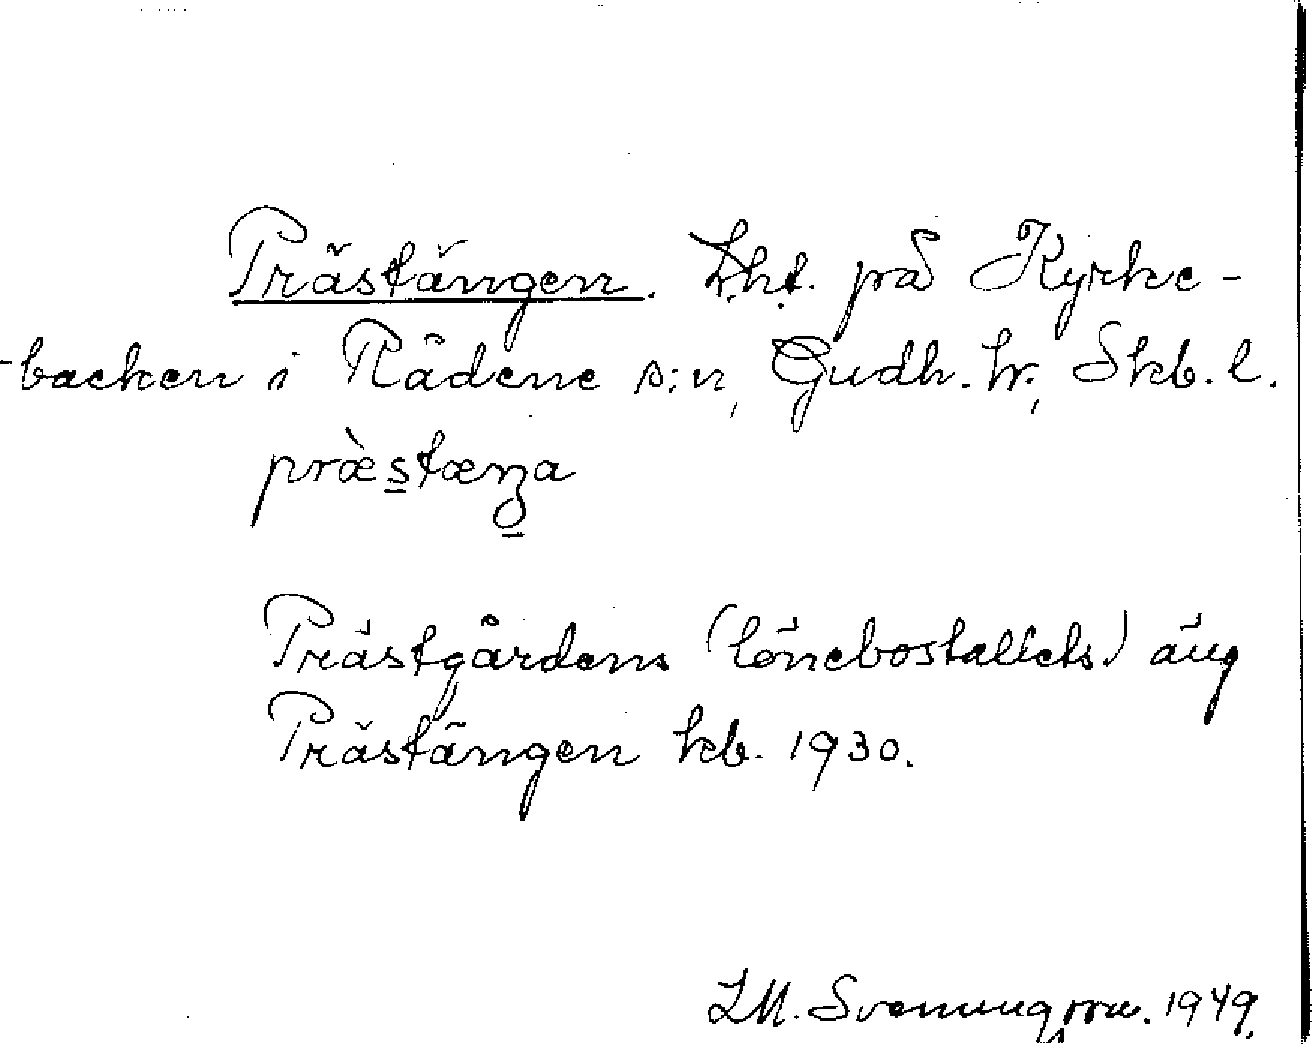 Prästängen. Lht. på Kyrke-
-backen i Rådene s:n, Gudh. hr., Skb. l.
præ̀stæŋa
Prästgårdens (lönebostallets) äng
Prästängen kb. 1930.
LM. Svenungsson. 1949.